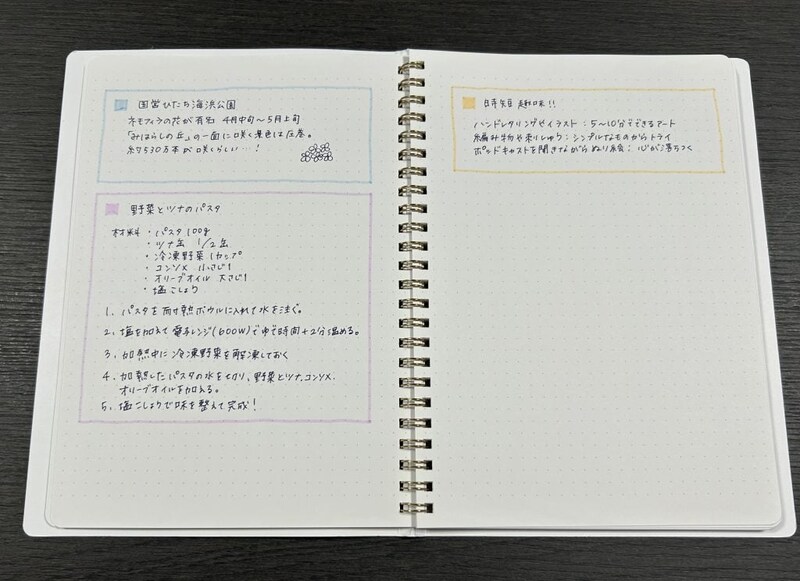 国営ひたち海浜公園
ネモフィラの花が有名 4月中旬〜5月上旬
「みはらしの丘」の一面に咲く景色は圧巻。
約530万本が咲くらしい…!
野菜とツナのパスタ
材料・パスタ 100g
・ツナ缶 1/2缶
・冷凍野菜 1カップ
・コンソメ 小さじ1
・オリーブオイル 大さじ1
・塩こしょう
1. パスタを耐熱ボウルに入れて水を注ぐ。
2. 塩を加えて電子レンジ(600W)でゆで時間+2分温める。
3. 加熱中に冷凍野菜を解凍しておく
4. 加熱したパスタの水を切り、野菜とツナ、コンソメ、
オリーブオイルを加える。
5. 塩こしょうで味を整えて完成!
時短趣味!!
ハンドレタリングやイラスト:5〜10分でできるアート
編み物や刺しゅう:シンプルなものからトライ
ポッドキャストを聞きながらぬり絵:心が落ちつく